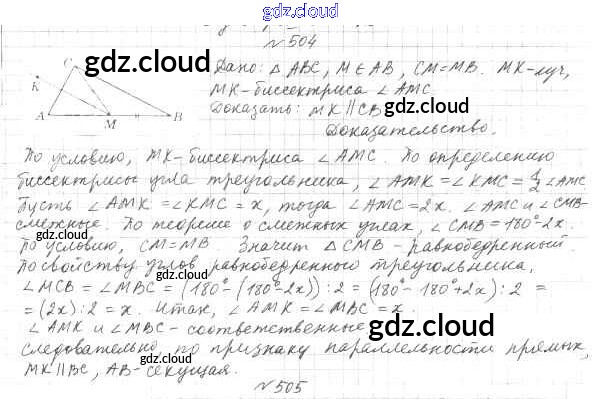 gdz.cloud
№504
gdz.cloud gdz.cloud
Дано: △ ABC, M ∈ AB, CM=MB. MK-луч,
MK-биссектриса ∠ AMC.
Доказать: MK∥CB
gdz.cloud gdz.cloud
Доказательство.
C K A M B
По условию, MK-биссектриса ∠ AMC. По определению
биссектрисы угла треугольника, ∠ AMK=∠ KMC=1/2 ∠ AMC
Пусть ∠ AMK =∠ KMC = x, тогда ∠ AMC=2x. ∠ AMC и ∠ CMB-
смежные. По теореме о смежных углах, ∠ CMB=180°-2x.
gdz.cloud gdz.cloud
По условию, CM=MB. Значит △ CMB-равнобедренный
По свойству углов равнобедренного треугольника,
∠ MCB = ∠ MBC = (180°-(180°-2x)):2 = (180°-180°+2x):2 =
= (2x):2 = x. Итак, ∠ AMK = ∠ MBC = x.
∠ AMK и ∠ MBC-соответственные
gdz.cloud
следовательно, по признаку параллельности прямых,
gdz.cloud
MK∥BC, AB-секущая.
№505